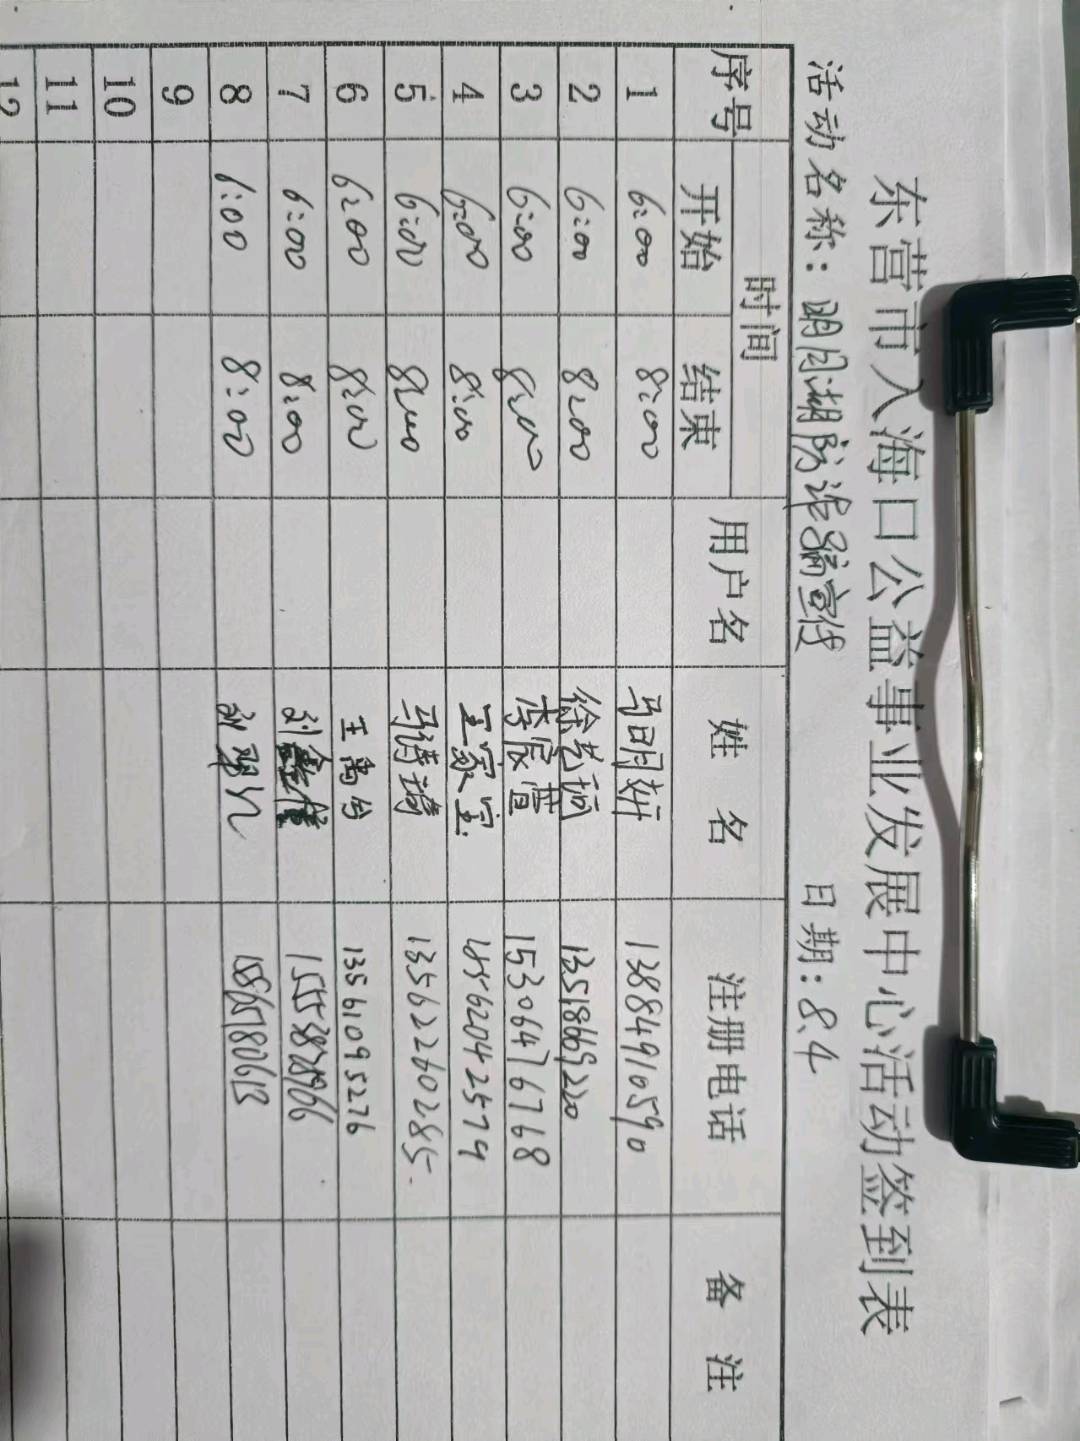 东营市入海口公益事业发展中心活动签到表
活动名称：明月湖防诈骗宣传 日期：8.4
序号 时间 用户名 姓名 注册电话 备注
开始 结束
1 6:00 8:00 马明妍 13884910590
2 6:00 8:00 徐艺珂 13518669220
3 6:00 8:00 李宸萱 15306476768
4 6:00 8:00 王家宝 18562042579
5 6:00 8:00 马诗琦 13562260285
6 6:00 8:00 王禹台 13561095276
7 6:00 8:00 刘鑫 15558828966
8 6:00 8:00 15865780613
9
10
11
12